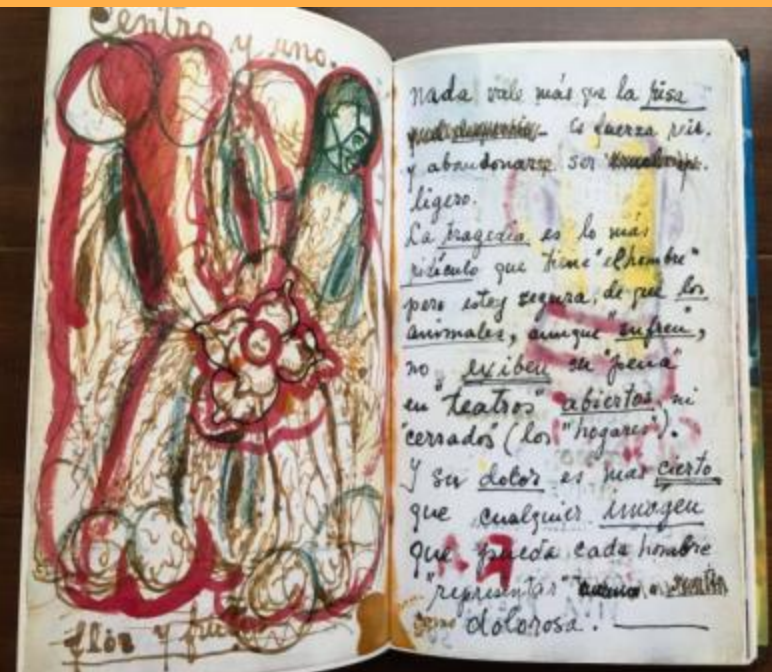 Centro y uno.
flor y fruto
nada vale más que la risa
Es fuerza reir.
y abandonarse ser
ligero.
La tragedia es lo más
ridículo que tiene "el hombre"
pero estoy segura, de que los
animales, aunque "sufren",
no exiben su "pena"
en "teatros" abiertos, ni
"cerrados" (los "hogares").
Y su dolor es más cierto
que cualquier imágen
que pueda cada hombre
"representar"
como dolorosa.